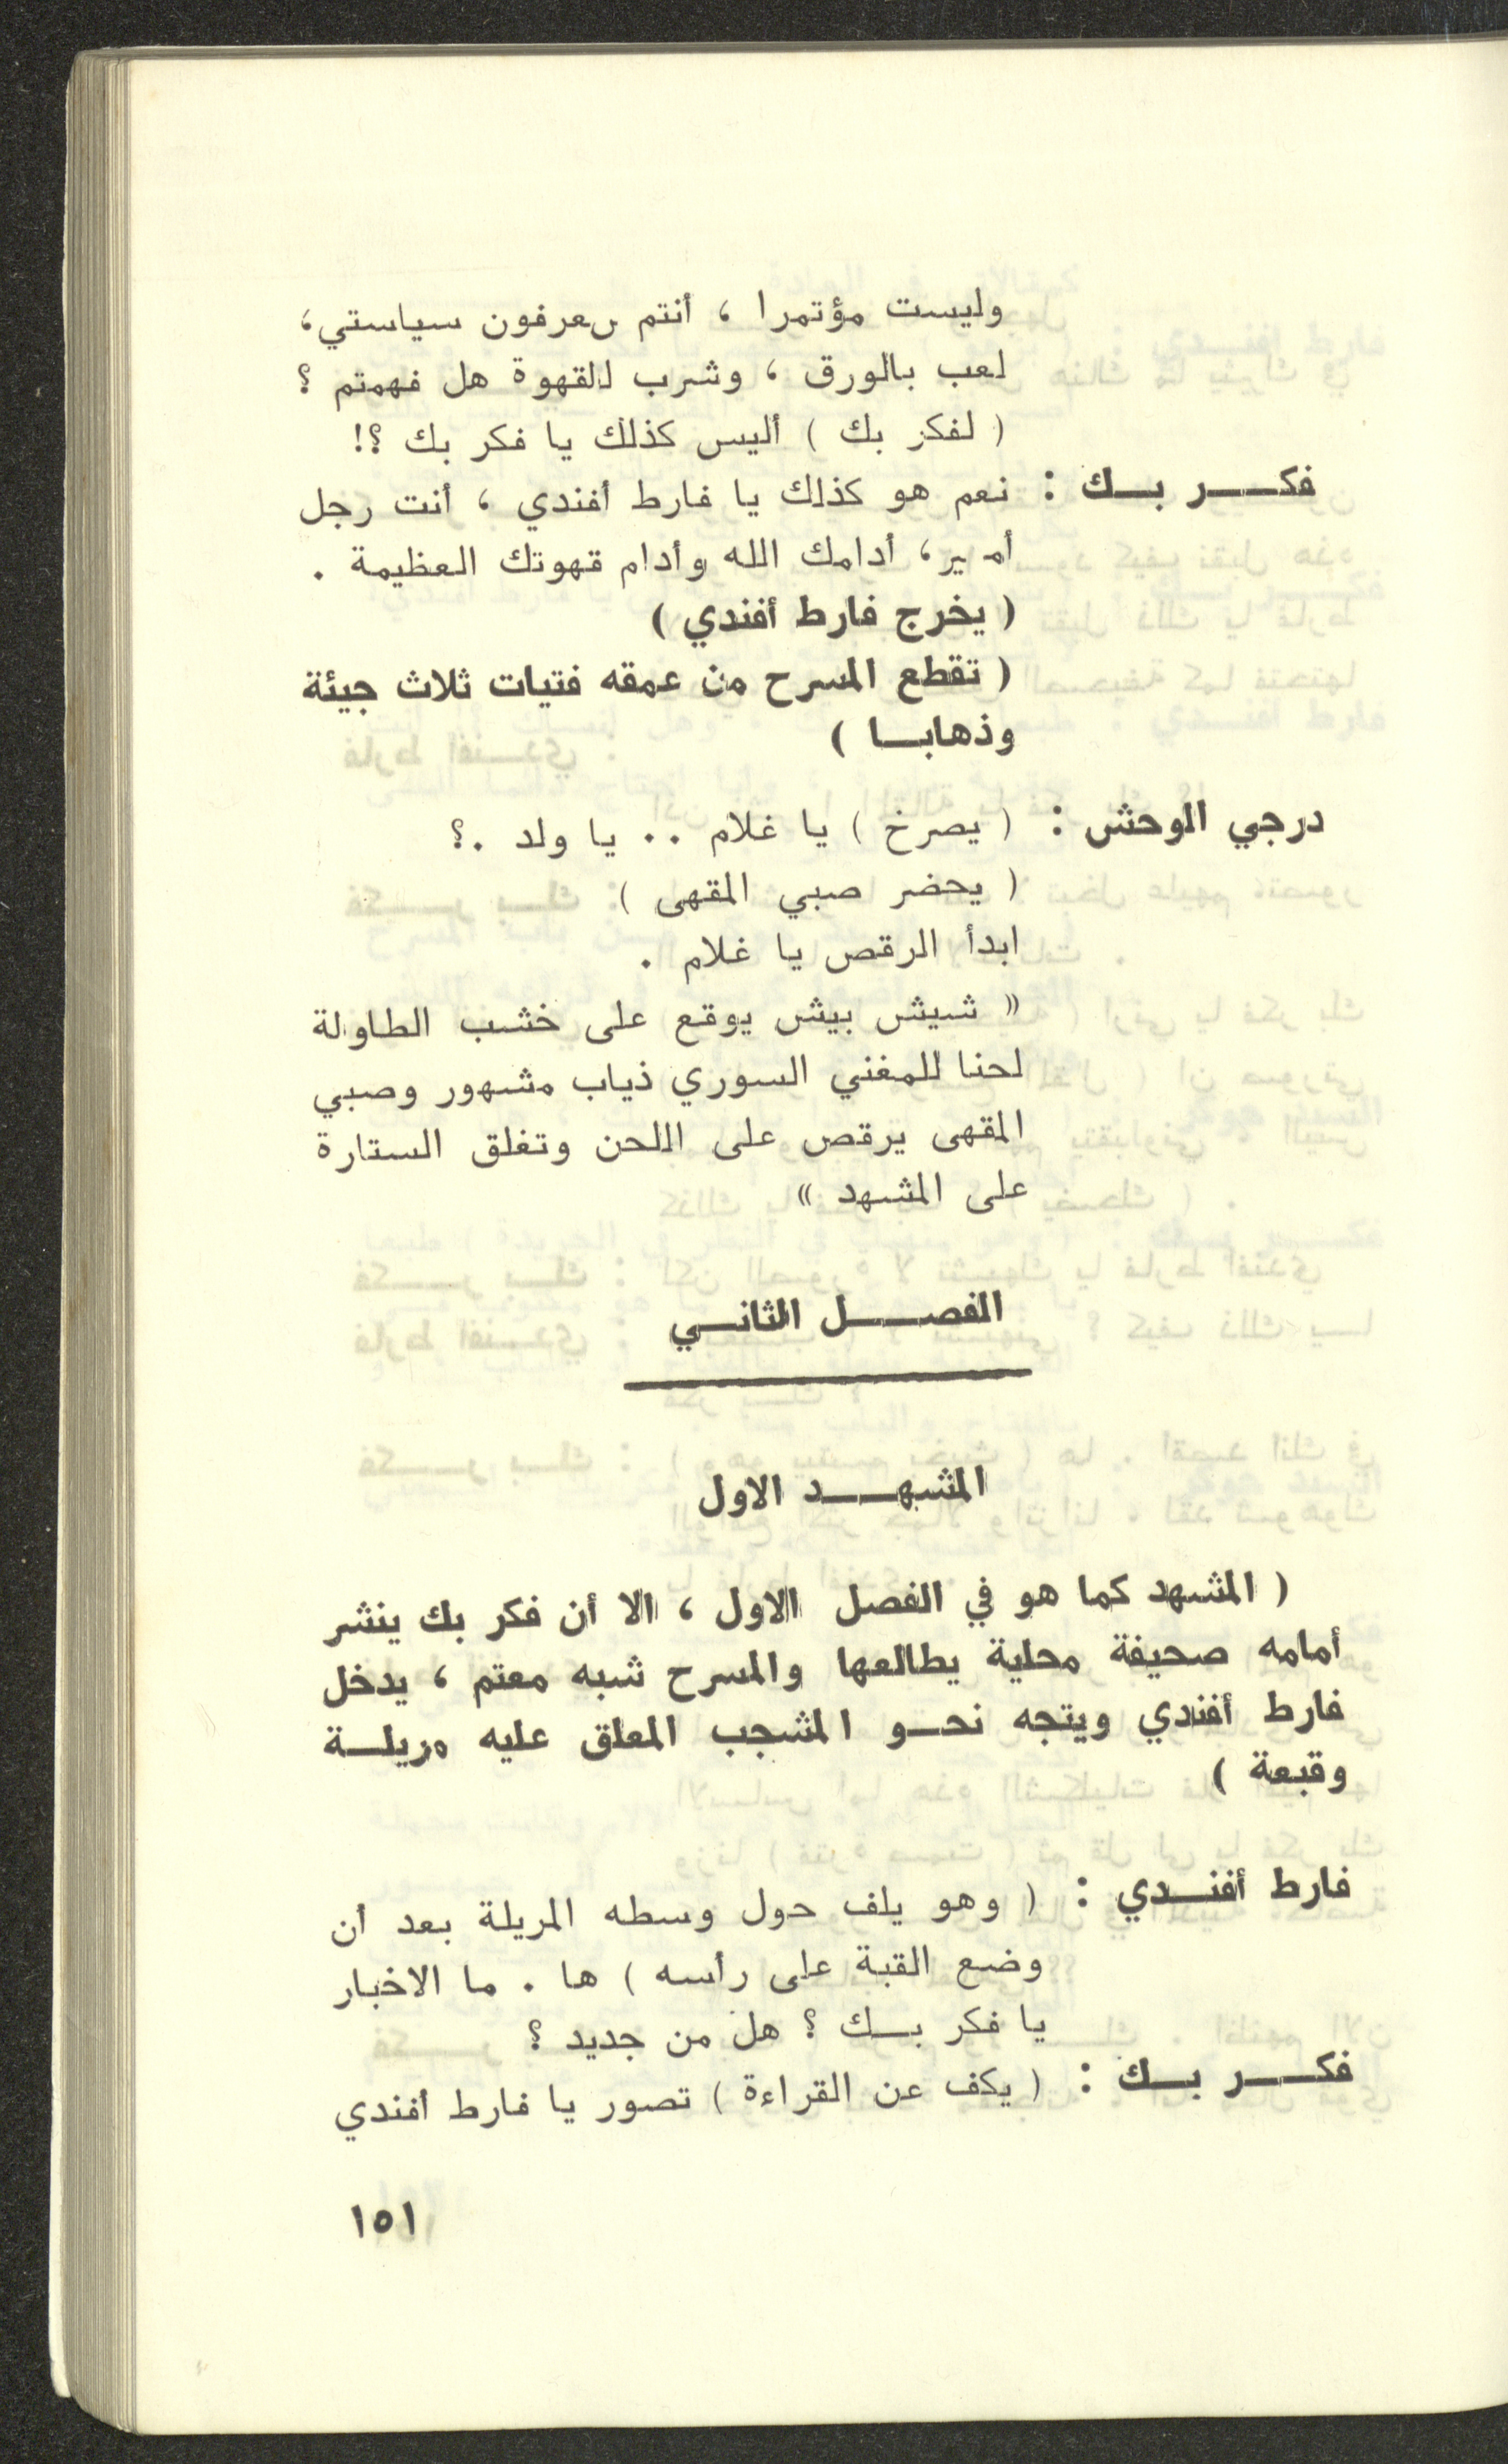 وليست مؤتمرا ، أنتم تعرفون سياستي،
لعب بالورق ، وشرب للقهوة هل فهمتم ؟
( لفكر بك ) أليس كذلك يا فكر بك ؟!
فكـــر بــك : نعم هو كذلك يا فارط أفندي ، أنت رجل
أمير، أدامك الله وأدام قهوتك العظيمة .
( يخرج فارط أفندي )
( تقطع المسرح من عمقه فتيات ثلاث جيئة
وذهابــا )
درجي الوحش : ( يصرخ ) يا غلام .. يا ولد .؟
( يحضر صبي المقهى )
ابدأ الرقص يا غلام .
« شيش بيش يوقع على خشب الطاولة
لحنا للمغني السوري ذياب مشهور وصبي
المقهى يرقص على اللحن وتغلق الستارة
على المشهد »
الفصــــل الثانــي
المشهـــد الاول
( المشهد كما هو في الفصل الاول ، الا أن فكر بك ينشر
أمامه صحيفة محلية يطالعها والمسرح شبه معتم ، يدخل
فارط أفندي ويتجه نحــو المشجب المعلق عليه مريلــة
وقبعة )
فارط أفنــدي : ( وهو يلف حول وسطه المريلة بعد أن
وضع القبة على رأسه ) ها . ما الاخبار
يا فكر بــك ؟ هل من جديد ؟
فكـــر بــك : ( يكف عن القراءة ) تصور يا فارط أفندي
١٥١